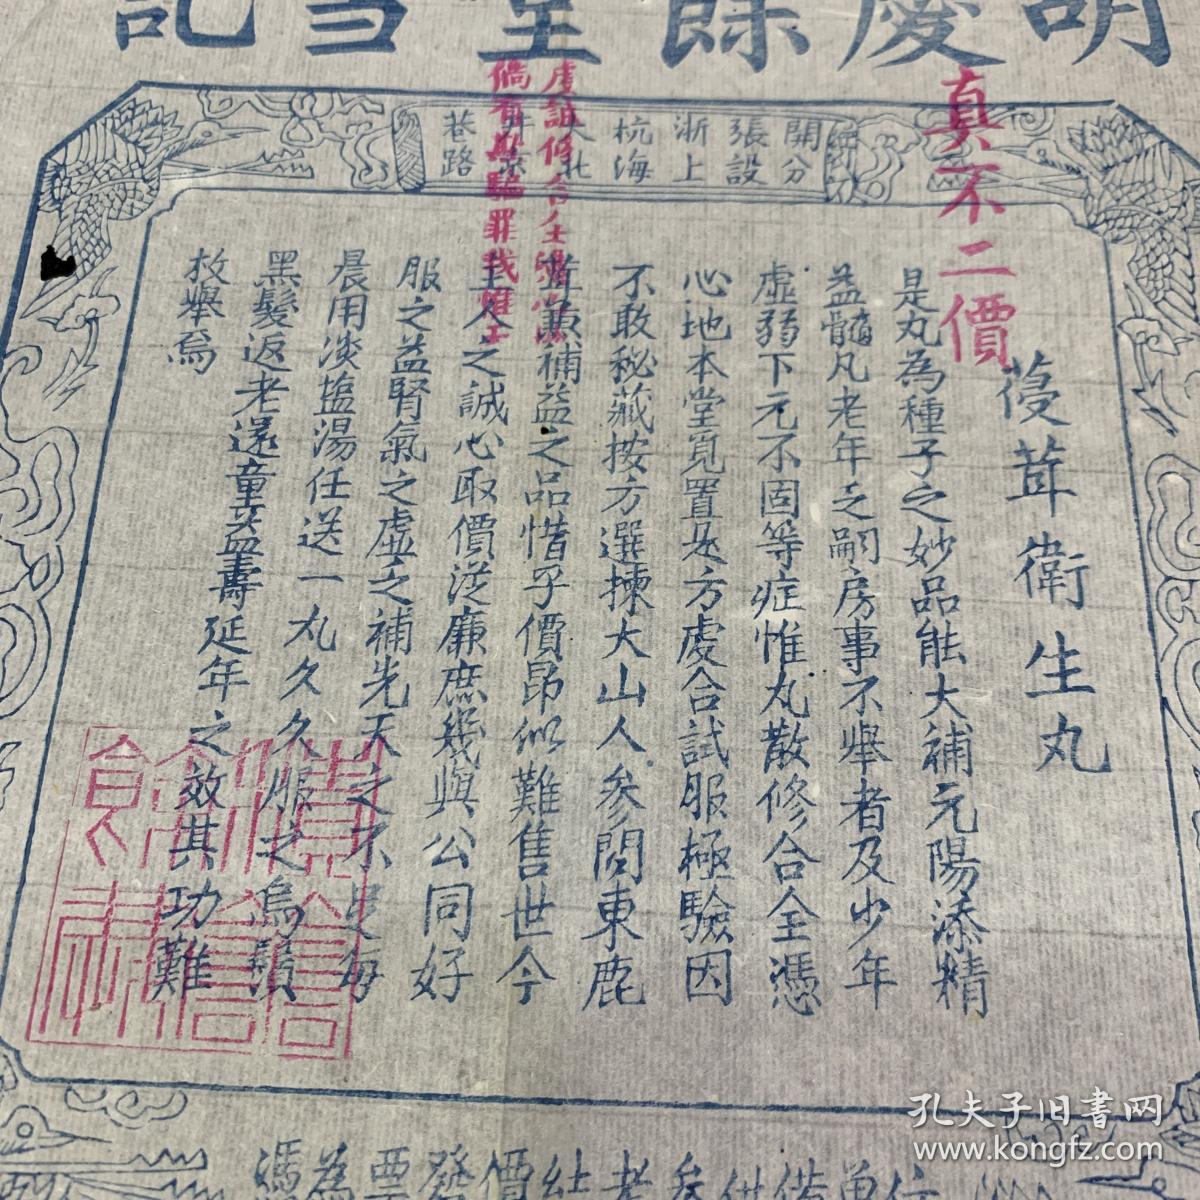 胡慶餘堂雪記
開設杭大井巷
分設上海北京路
真不二價
虔誠修合全憑心
倘有為騙罪我惟
葠茸衛生丸
是丸為種子之妙品能大補元陽添精
益髓凡老年乏嗣房事不舉者及少年
虛弱下元不固等症惟丸散修合全憑
心地本堂覓置是方虔合試服極驗因
不敢秘藏按方選揀大山人參関東鹿
茸兼補益之品惜乎價昂似難售世今
主人之誠心取價從廉庶幾與公同好
服之益腎氣之虛之補先天之不足每
晨用淡塩湯任送一丸久久服之烏鬚
黑髮返老還童益壽延年之效其功難
枚舉焉
馮為票發價紅老參供偕單
孔夫子旧书网
www.kongfz.com